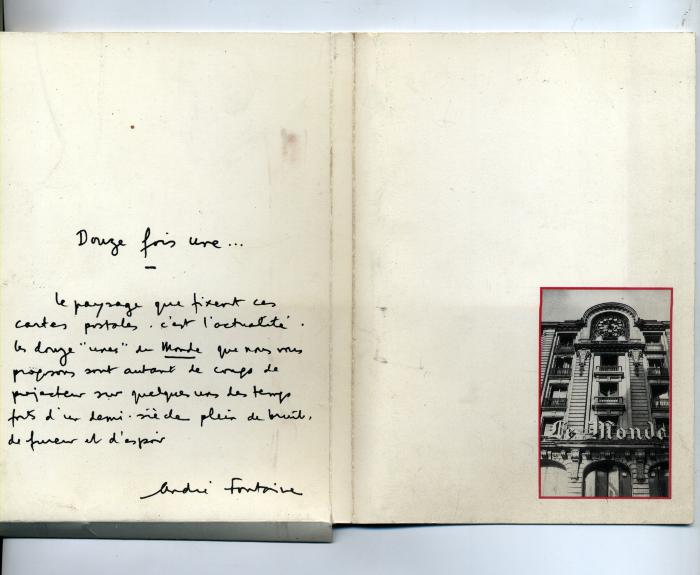 Douze fois une...
Le paysage que fixent ces
cartes postales, c'est l'actualité.
Les douze "unes" du Monde que nous vous
proposons sont autant de coups de
projecteur sur quelques uns des temps
forts d'un demi-siècle plein de bruit,
de fureur et d'espoir
André Fontaine
Le Monde